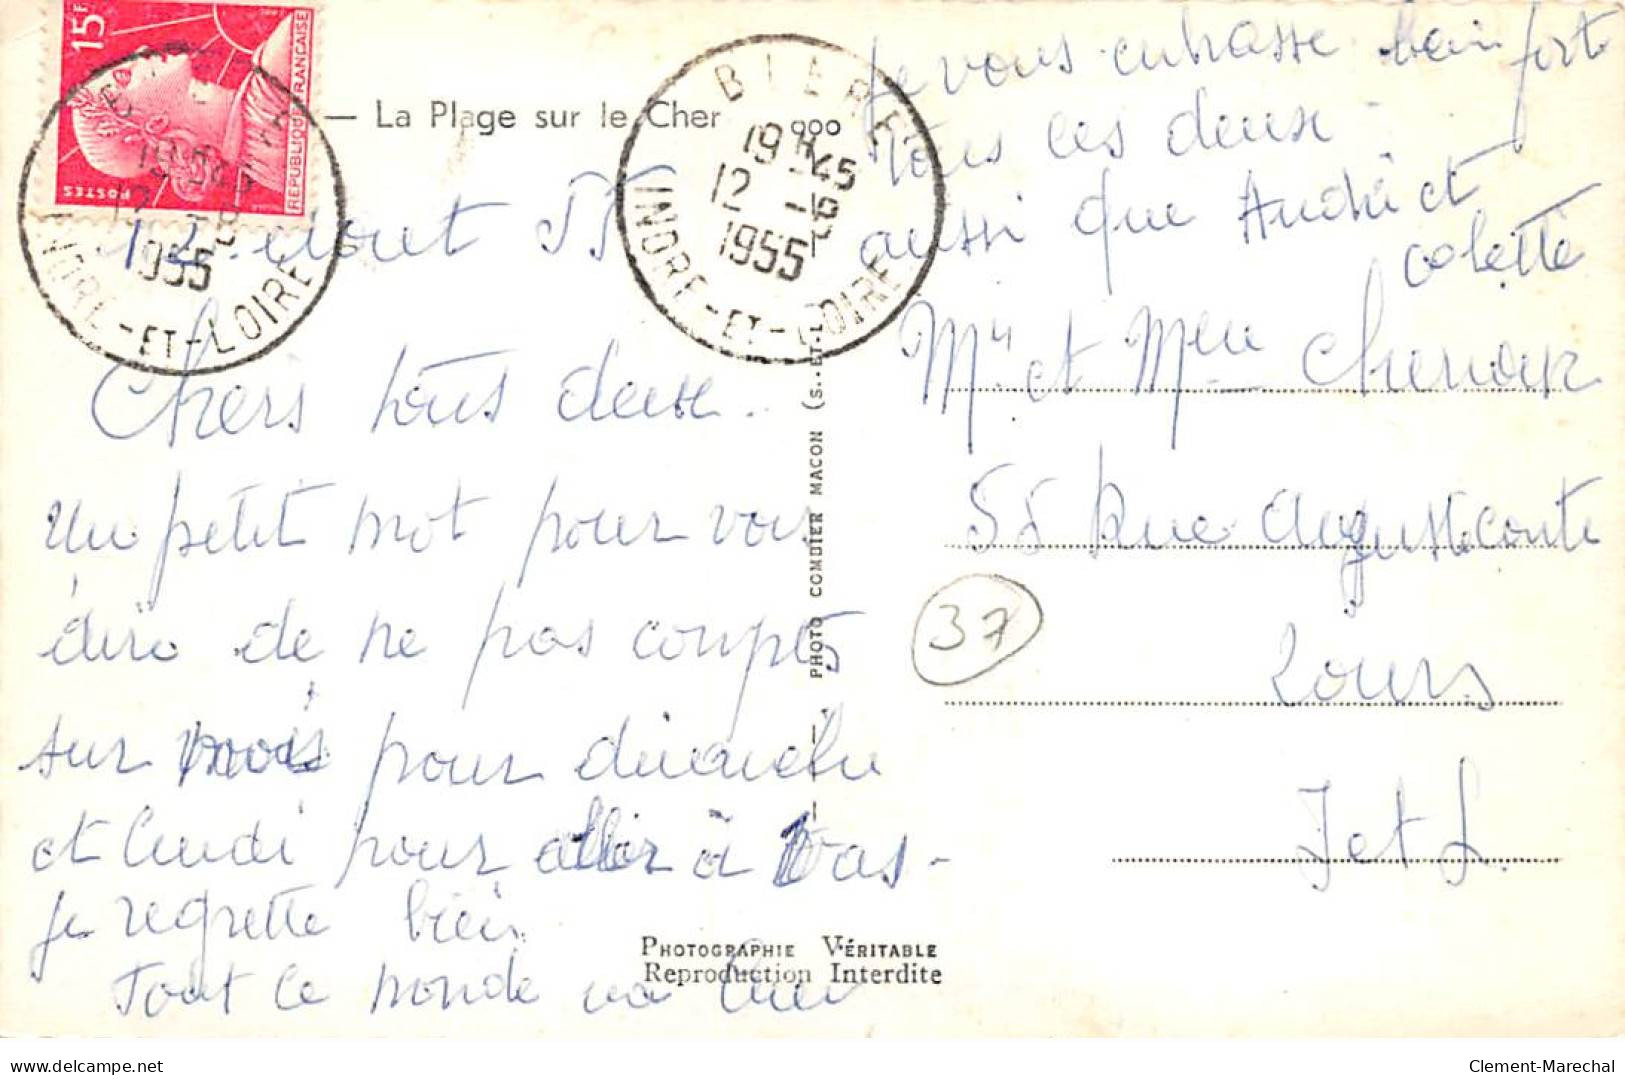 15F
POSTES
REPUBLIQUE FRANÇAISE
— La Plage sur le Cher
BLERE
19 H 45
12 -8
1955
INDRE-ET-LOIRE
19 H 45
12 -8
1955
INDRE-ET-LOIRE
12 aout 55
Chers tous deux.
Un petit mot pour vous
dire de ne pas compter
sur nous pour dimanche
et lundi pour aller à Vas-
Je regrette bien
Tout le monde va bien
PHOTO COMBIER MACON (S.-ET-L.
PHOTOGRAPHIE VÉRITABLE
Reproduction Interdite
Je vous embrasse bien fort
tous les deux
aussi que André et
Colette
Mr et Mme Chenoux
55 Rue Auguste Comte
37
Tours
I et L.
Clement-Marechal